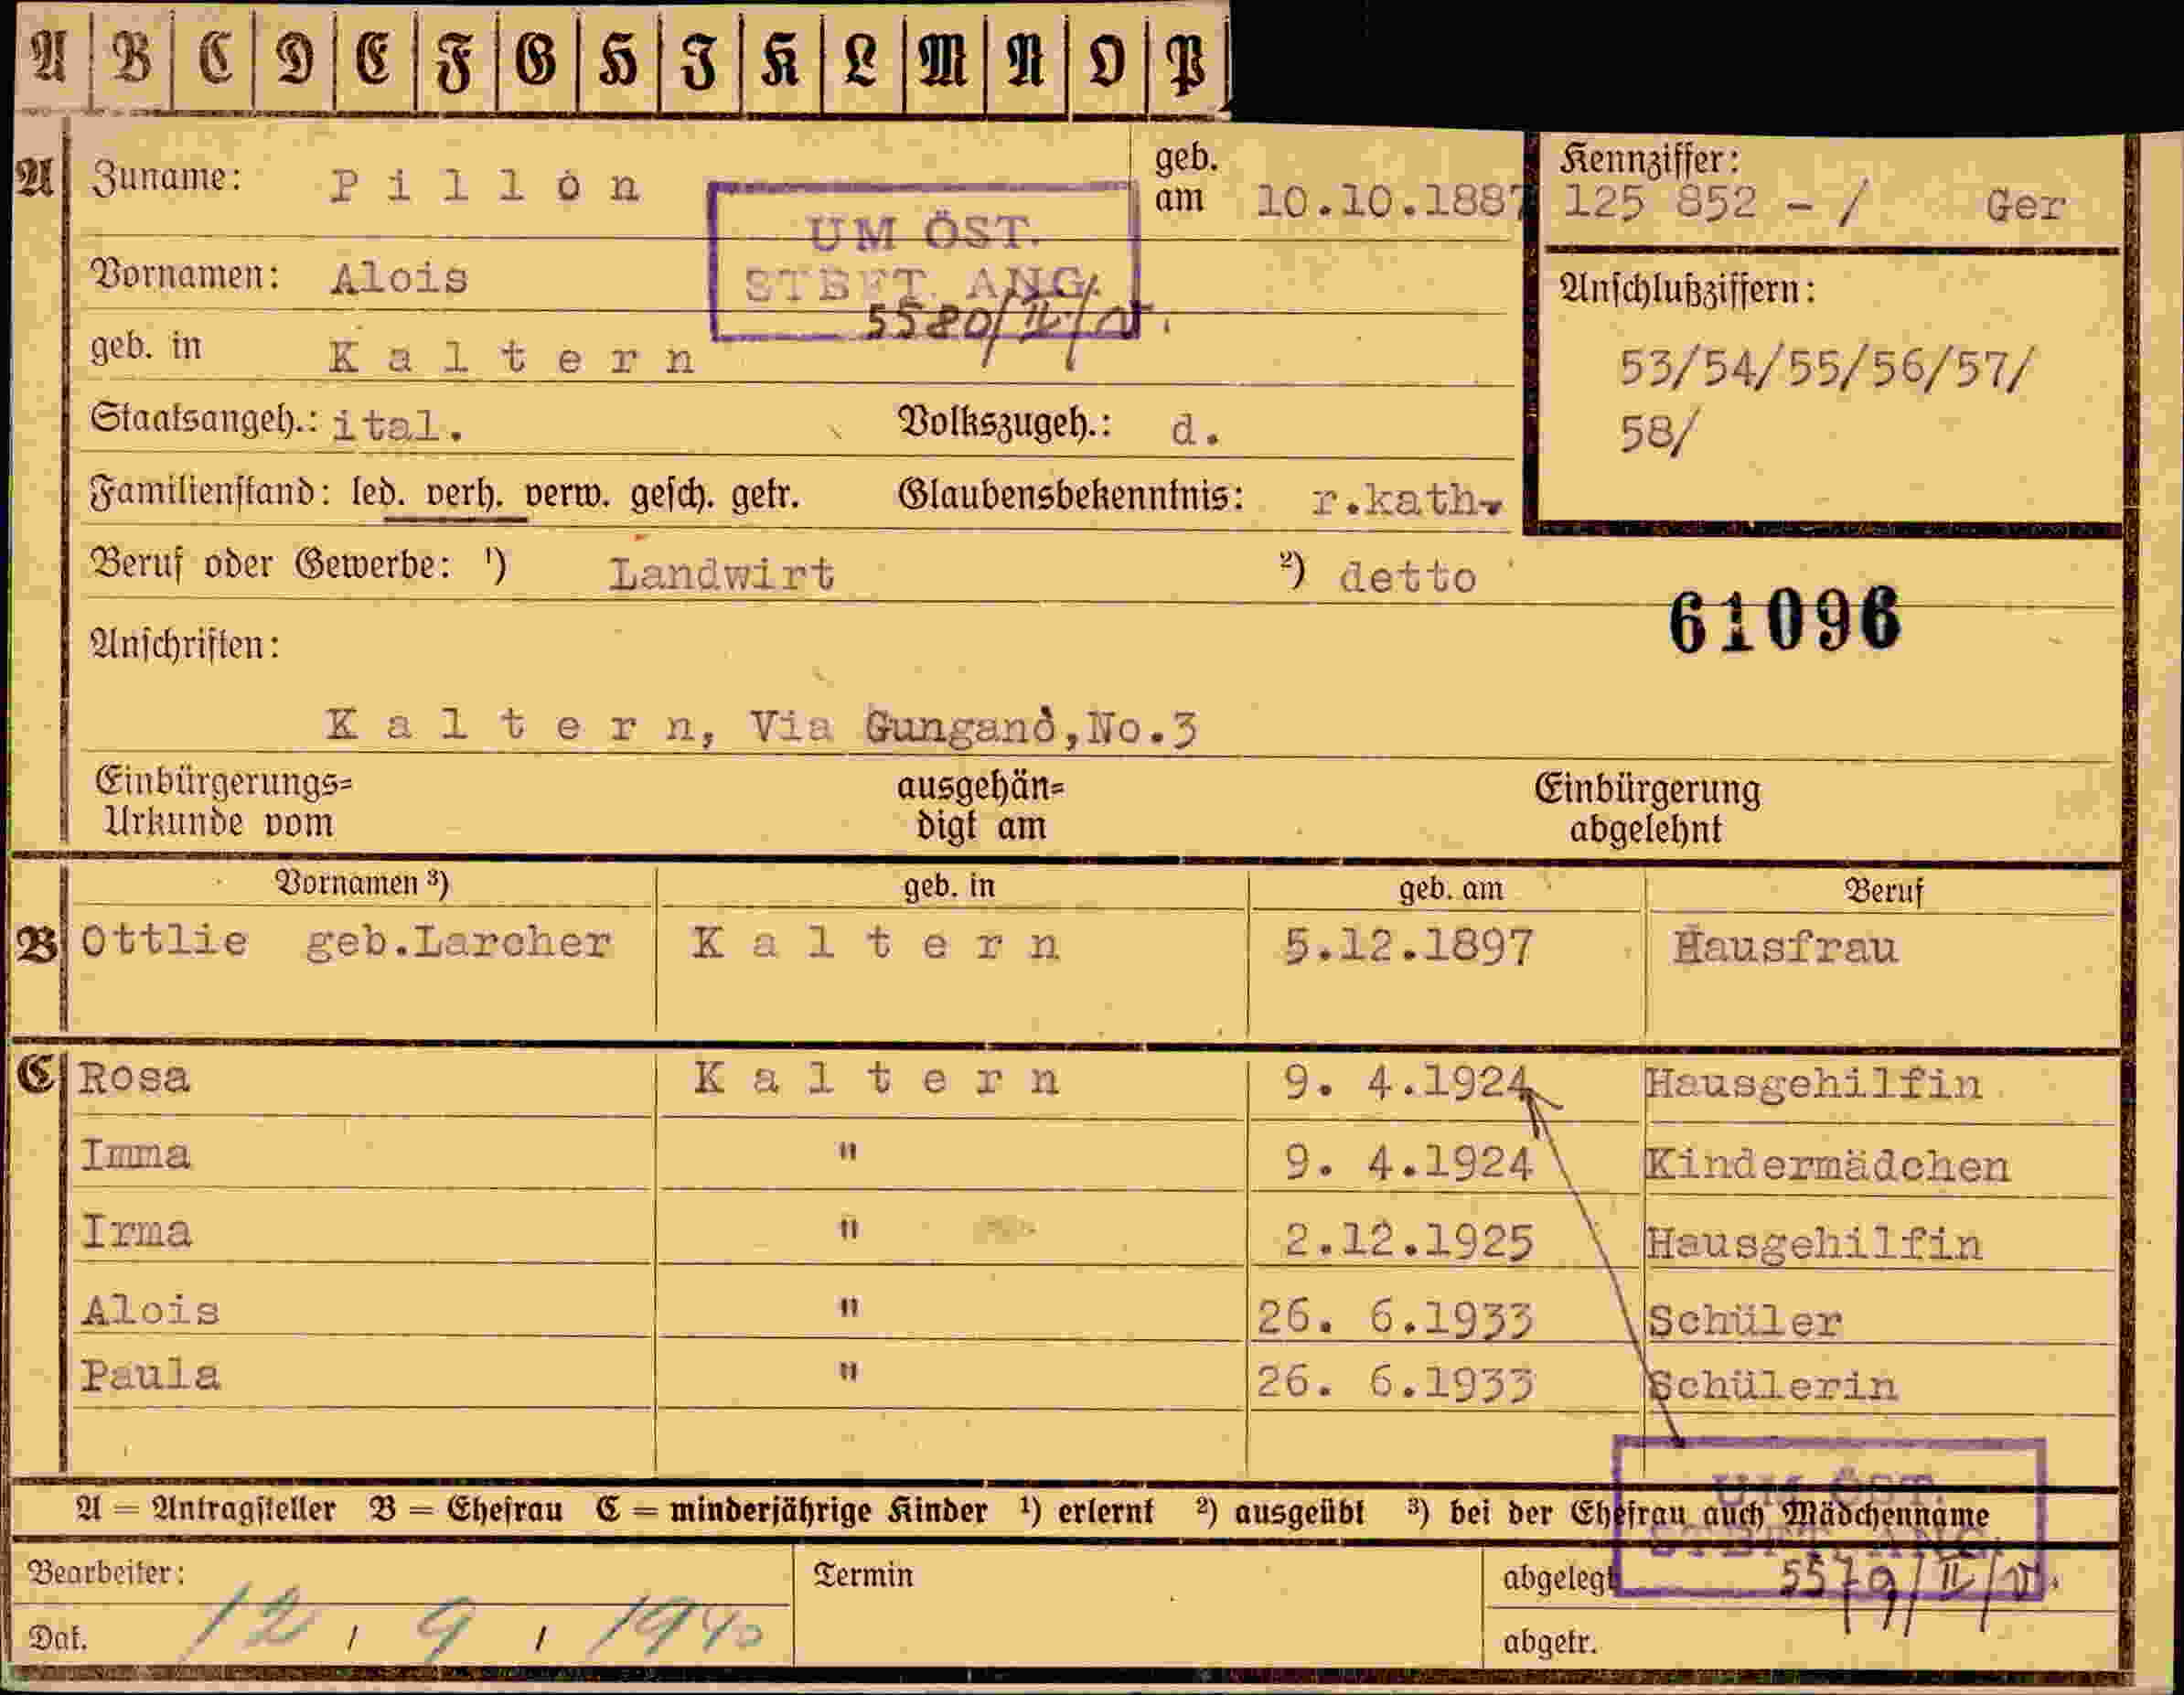 A B C D E F G H I K L M N O P
A Zuname: Pillon geb. am 10.10.1887 Kennziffer: 125 852 - / Ger
UM ÖST.
STBFT. ANG.
5580/II/
Vornamen: Alois Anschlußziffern:
geb. in Kaltern 53/54/55/56/57/
Staatsangeh.: ital. Volkszugeh.: d. 58/
Familienstand: led. verh. verw. gesch. getr. Glaubensbekenntnis: r.kath.
Beruf oder Gewerbe: ¹) Landwirt ²) detto
61096
Anschriften:
Kaltern, Via Gungano, No.3
Einbürgerungs= ausgehän= Einbürgerung
Urkunde vom digt am abgelehnt
Vornamen ³) geb. in geb. am Beruf
B Ottlie geb.Larcher Kaltern 5.12.1897 Hausfrau
C Rosa Kaltern 9. 4.1924 Hausgehilfin
Imma " 9. 4.1924 Kindermädchen
Irma " 2.12.1925 Hausgehilfin
Alois " 26. 6.1933 Schüler
Paula " 26. 6.1933 Schülerin
UM ÖST.
A = Antragsteller B = Ehefrau C = minderjährige Kinder ¹) erlernt ²) ausgeübt ³) bei der Ehefrau auch Mädchenname
STBFT. ANG.
Bearbeiter: Termin abgelegt 5579/II/
Dat. 12, 9, 1940 abgetr.